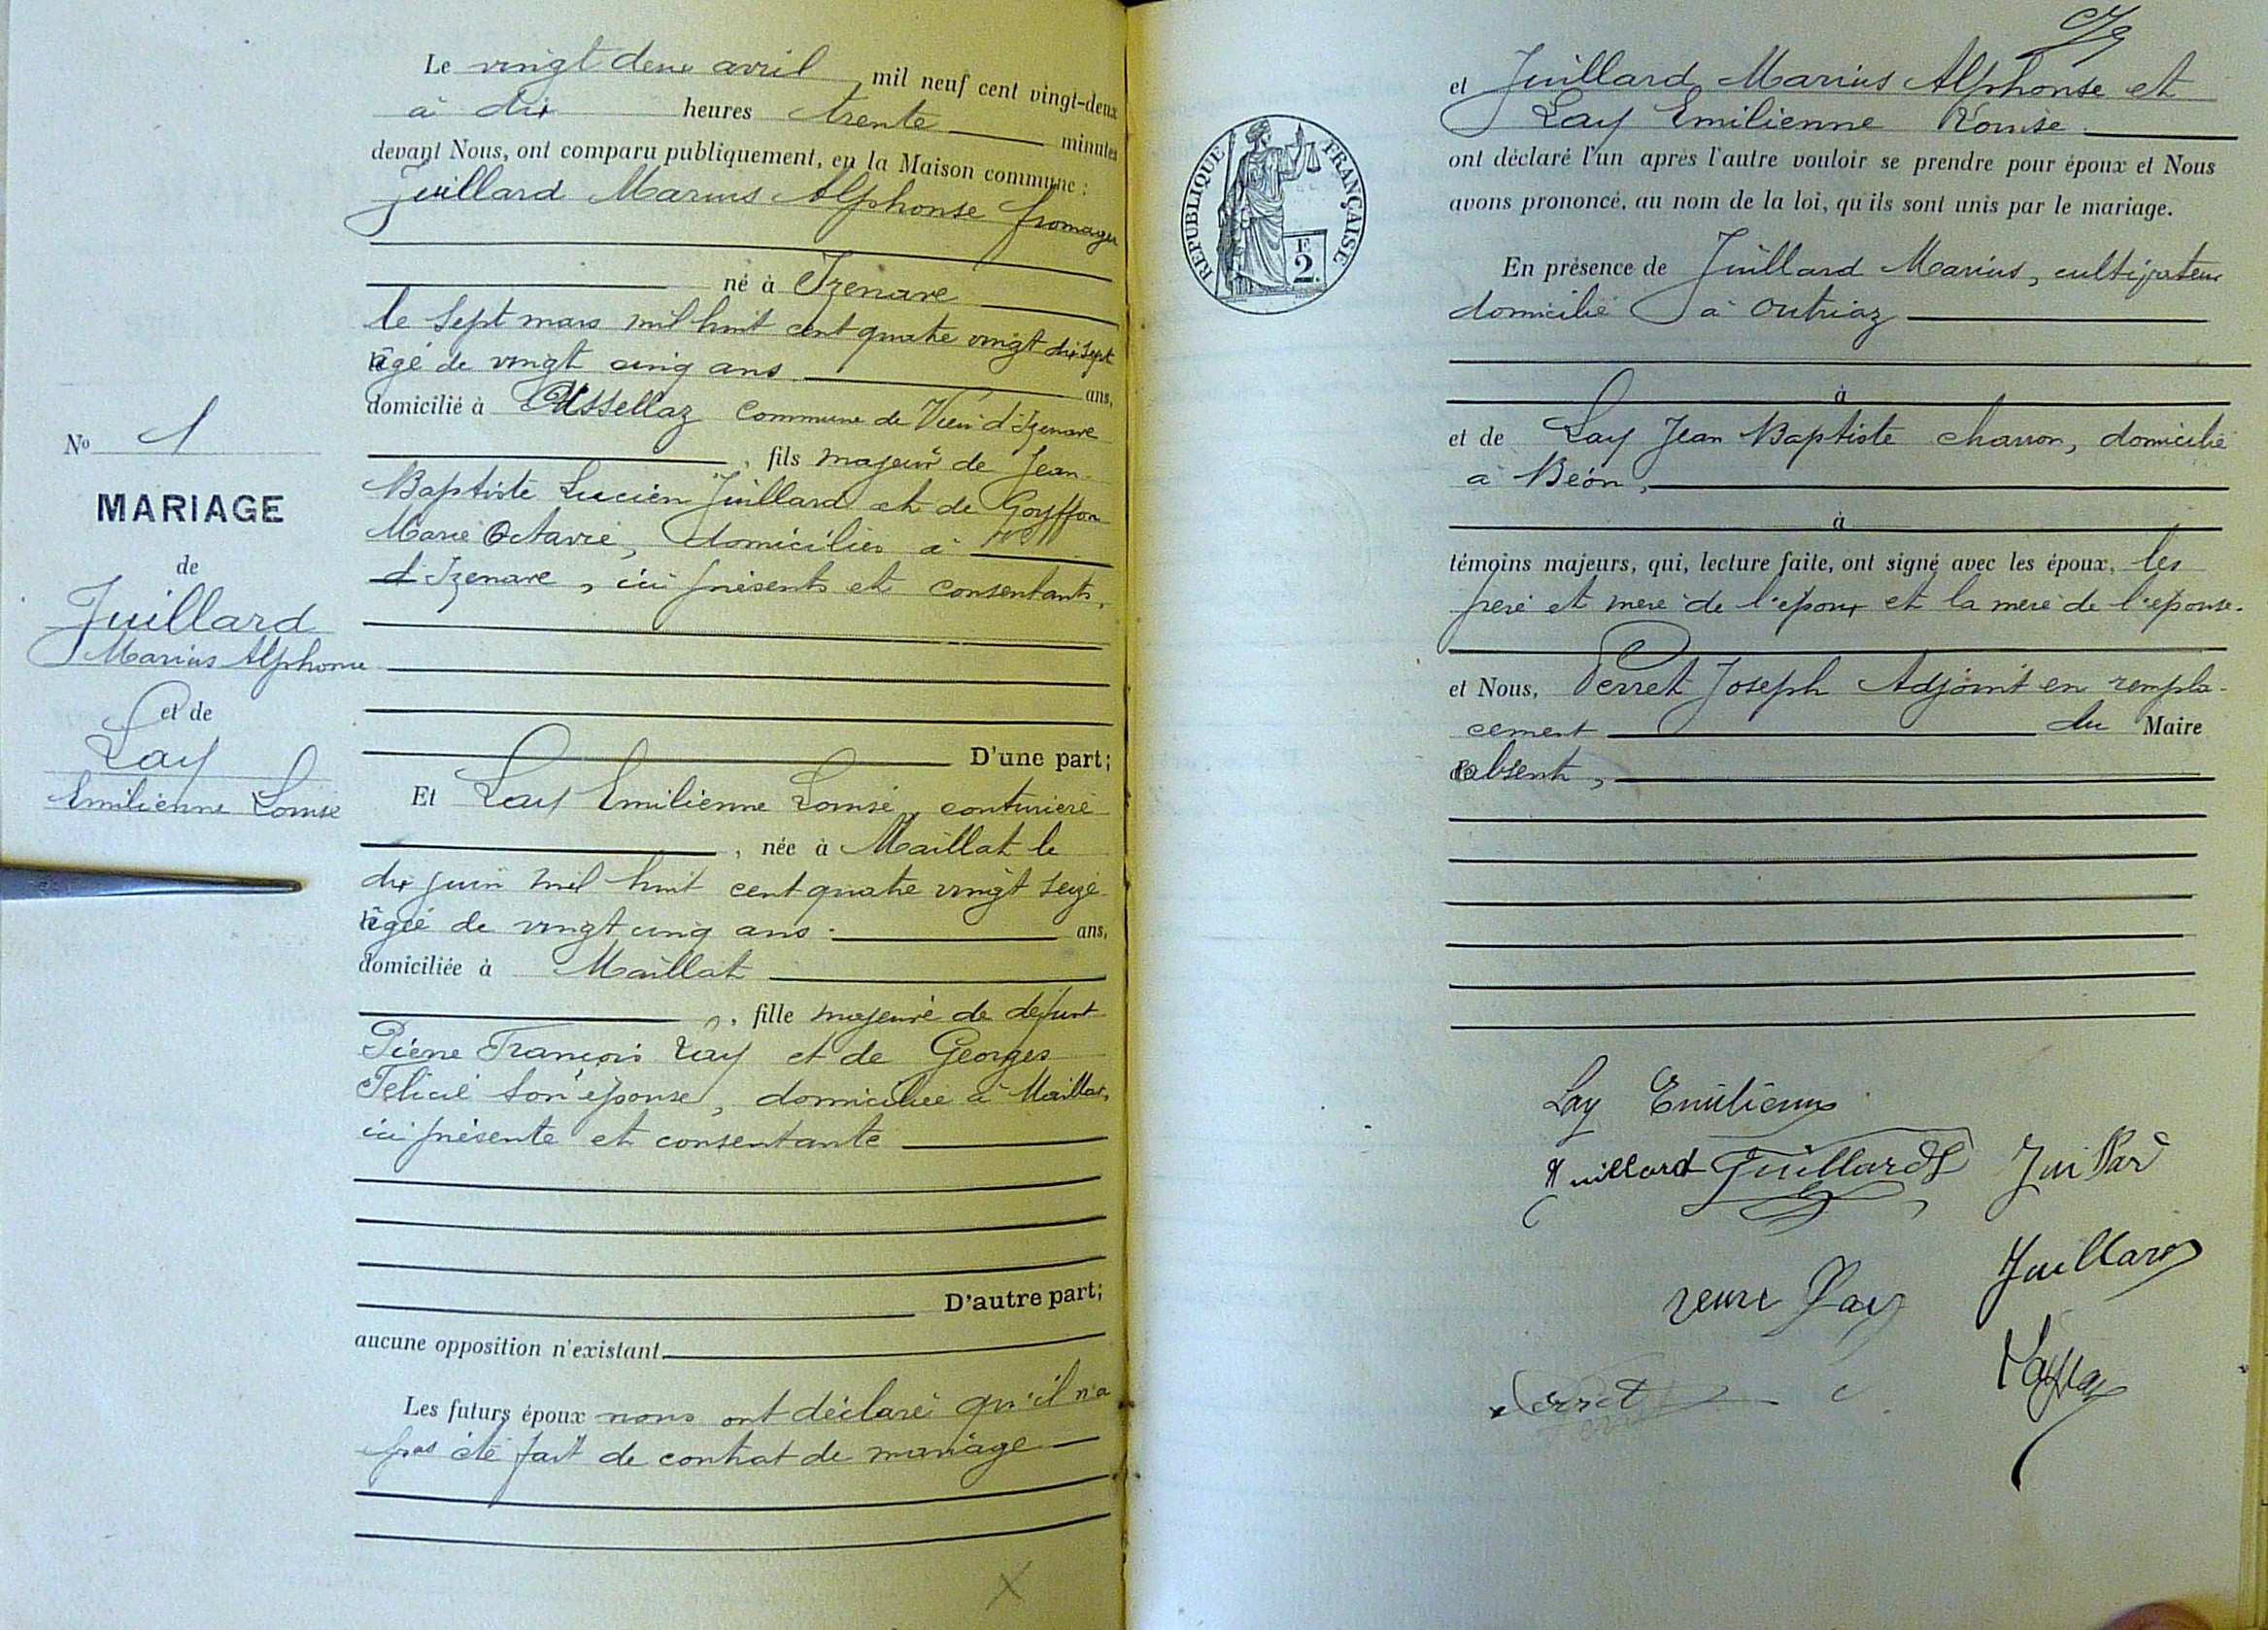 Le vingt deux avril mil neuf cent vingt-deux
à dix heures trente minutes
devant Nous, ont comparu publiquement, en la Maison commune :
Juillard Marius Alphonse fromager
né à Izenave
le sept mars mil huit cent quatre vingt dix sept
âgé de vingt cinq ans ans,
domicilié à Ussellaz commune de Vieu d'Izenave
, fils majeur de Jean-
Baptiste Lucien Juillard et de Goyffon
Marie Octavie, domiciliés à
d'Izenave, ici présents et consentants.
D'une part;
Et Lay Emilienne Louise, couturière
, née à Maillat le
dix juin mil huit cent quatre vingt seize
âgée de vingt cinq ans. ans,
domiciliée à Maillat
, fille majeure de défunt
Pierre François Lay et de Georges
Félicie son épouse, domiciliée à Maillat,
ici présente et consentante
D'autre part;
aucune opposition n'existant.
Les futurs époux nous ont déclaré qu'il n'a
pas été fait de contrat de mariage
No 1
MARIAGE
de
Juillard
Marius Alphonse
et de
Lay
Emilienne Louise
et Juillard Marius Alphonse et
Lay Emilienne Louise
ont déclaré l'un après l'autre vouloir se prendre pour époux et Nous
avons prononcé, au nom de la loi, qu'ils sont unis par le mariage.
RÉPUBLIQUE FRANÇAISE
F
2.
En présence de Juillard Marius, cultivateur
domicilié à Outriaz
à
et de Lay Jean Baptiste charron, domicilié
à Béon,
à
témoins majeurs, qui, lecture faite, ont signé avec les époux, les
père et mère de l'époux et la mère de l'épouse.
et Nous, Perret Joseph Adjoint en rempla-
cement du Maire
absent,
Lay Emilienne
Juillard Juillard Juillard
Juillard
veuve Lay
Perret